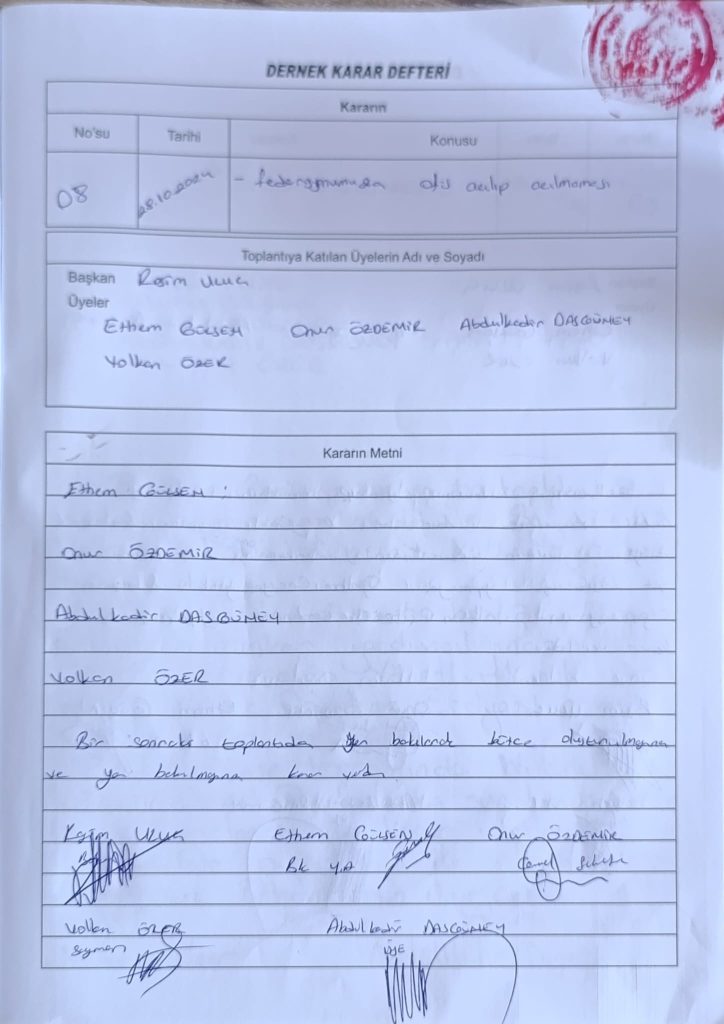 DERNEK KARAR DEFTERİ
Kararın
No'su Tarihi Konusu
08 28.10.2024 - federasyonumuza ofis açılıp açılmaması
Toplantıya Katılan Üyelerin Adı ve Soyadı
Başkan Rasim Uluğ
Üyeler
Ethem GÜLŞEN Onur ÖZDEMİR Abdulkadir DAŞGÜNEY
Volkan ÖZER
Kararın Metni
Ethem GÜLŞEN :
Onur ÖZDEMİR
Abdulkadir DAŞGÜNEY
Volkan ÖZER
Bir sonraki toplantıda yer bakılarak bütçe oluşturulmasına
ve yer bakılmasına karar
Ethem GÜLŞEN Onur ÖZDEMİR
Bşk Y.A Genel Sekreter
Volkan ÖZER Abdulkadir DAŞGÜNEY
Sayman ÜYE